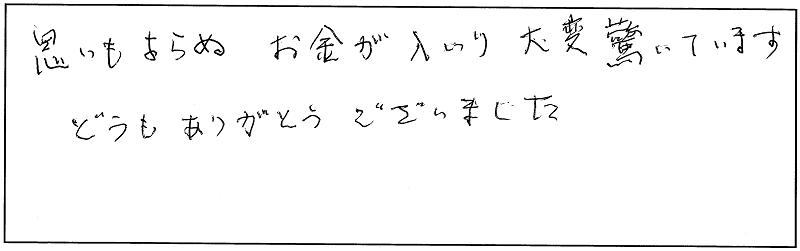 思いもよらぬ お金が入いり 大変驚いています
どうもありがとうございました